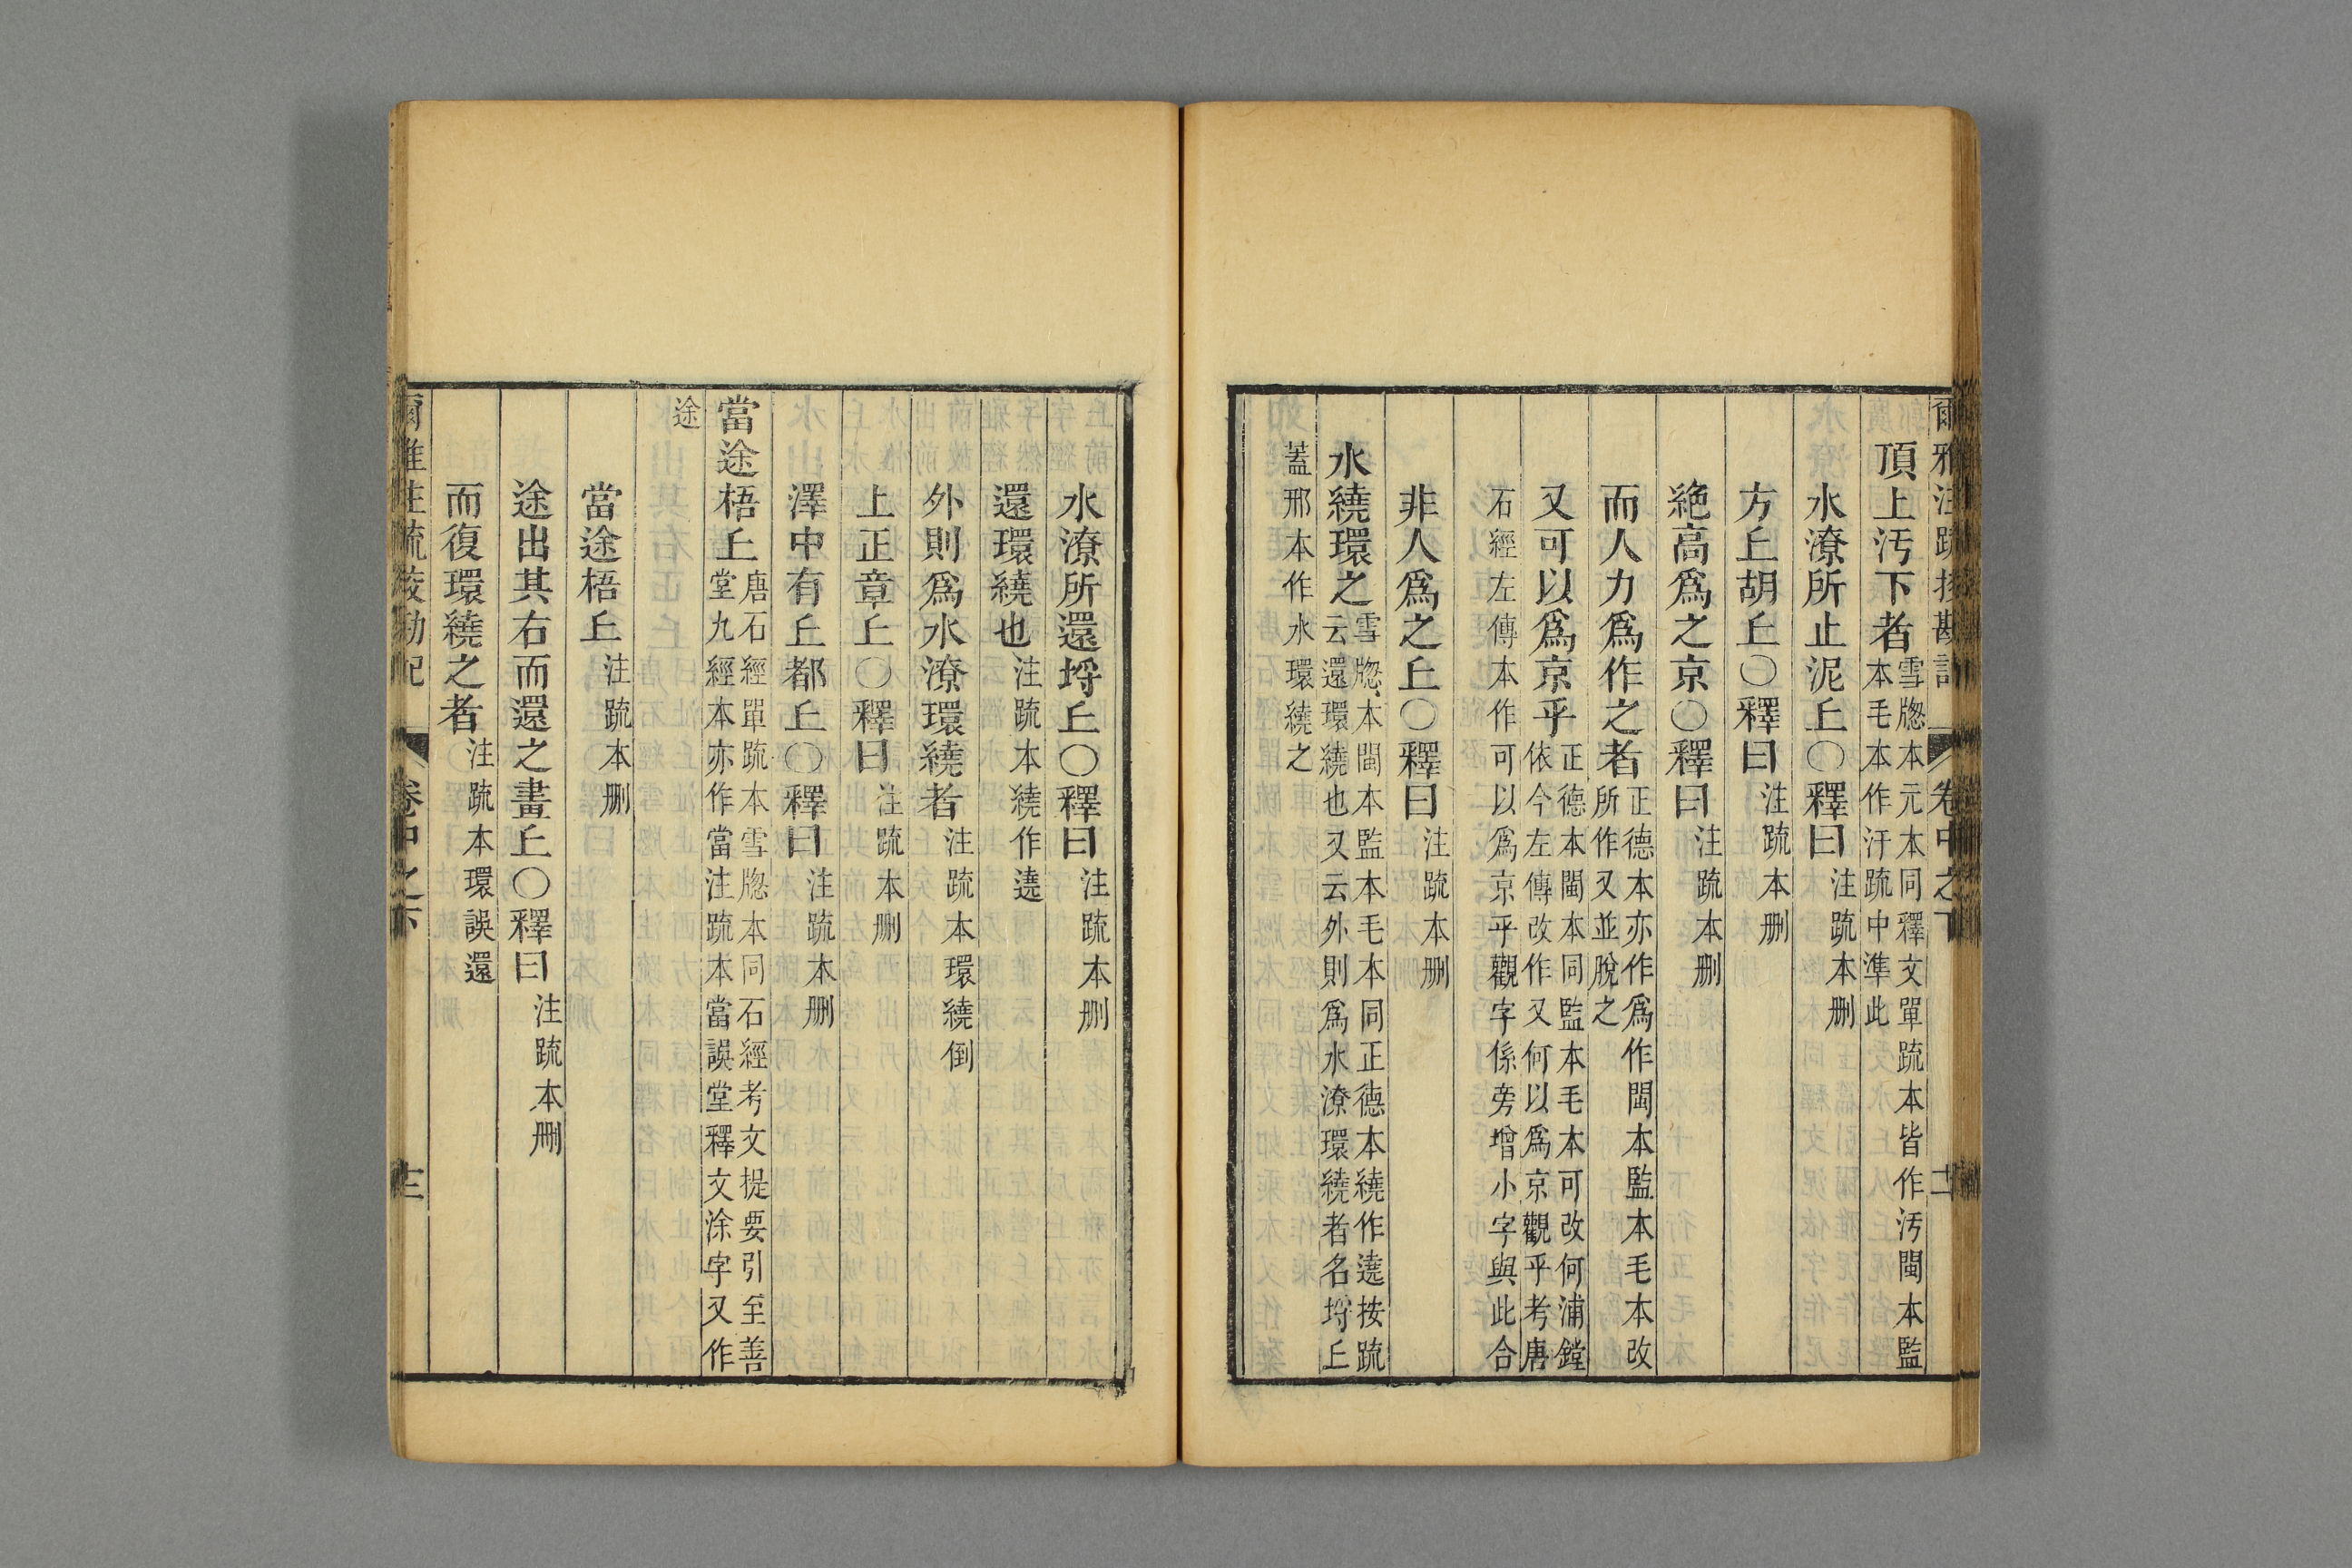 爾雅注疏挍勘記　卷中之下　十二
頂上汚下者雪牕本元本同釋文單疏本皆作汚閩本監
本毛本作汙疏中準此
水潦所止泥丘〇釋曰注疏本刪
方丘胡丘〇釋曰注疏本刪
絶高爲之京〇釋曰注疏本刪
而人力爲作之者正德本亦作爲作閩本監本毛本改
所作又並脫之
又可以爲京乎正德本閩本同監本毛本可改何浦鏜
依今左傳改作又何以爲京觀乎考唐
石經左傳本作可以爲京乎觀字係旁增小字與此合
非人爲之丘〇釋曰注疏本刪
水繞環之雪牕本閩本監本毛本同正德本繞作遶按疏
云還環繞也又云外則爲水潦環繞者名埒丘
蓋邢本作水環繞之
水潦所還埒丘〇釋曰注疏本刪
還環繞也注疏本繞作遶
外則爲水潦環繞者注疏本環繞倒
上正章丘〇釋曰注疏本刪
澤中有丘都丘〇釋曰注疏本刪
當途梧丘唐石經單疏本雪牕本同石經考文提要引至善
堂九經本亦作當注疏本當誤堂釋文涂字又作
途
當途梧丘注疏本刪
途出其右而還之畫丘〇釋曰注疏本刪
而復環繞之者注疏本環誤還
爾雅注疏挍勘記　卷中之下